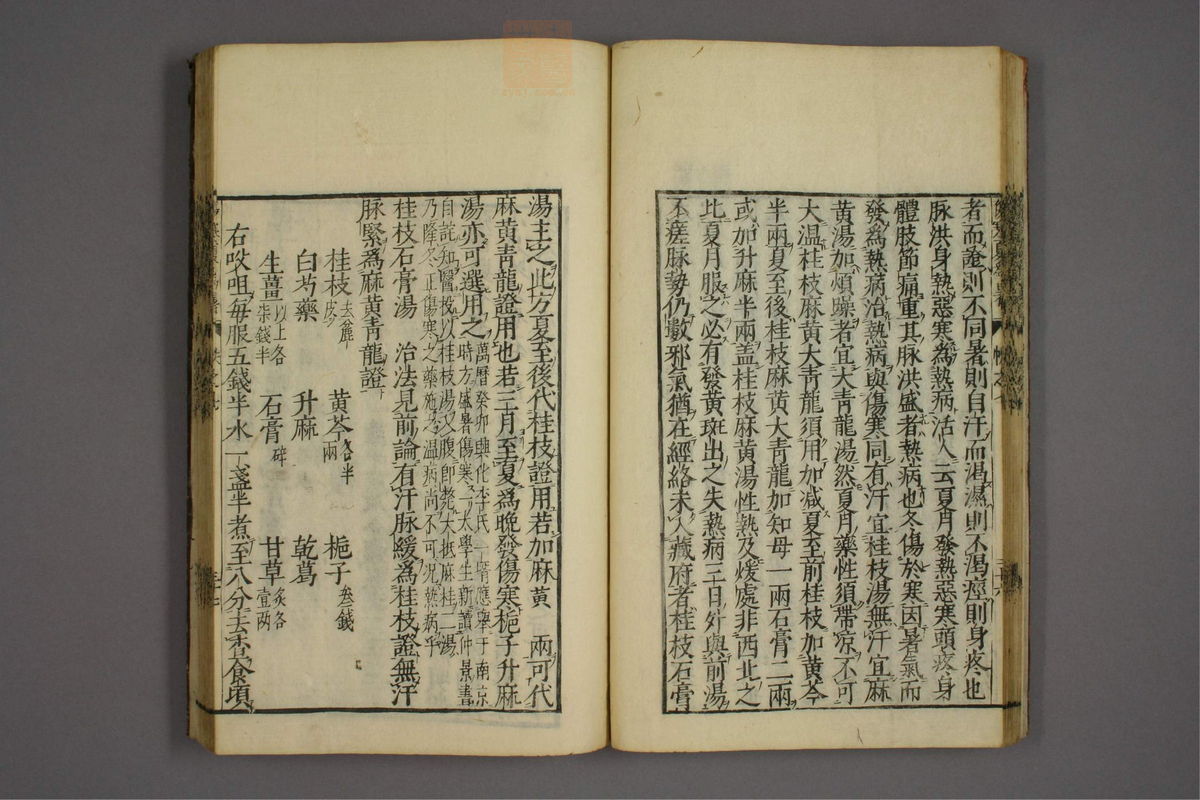 者而證則不同暑則自汗而渴濕則不渴痙則身疼也
脉洪身熱惡寒為熱病活人云夏月發熱惡寒頭疼身
體肢節痛重其脉洪盛者熱病也冬傷於寒因暑氣而
發為熱病治熱病與傷寒同有汗宜桂枝湯無汗宜麻
黃湯加煩躁者宜大青龍湯然夏月藥性須帶凉不可
大温桂枝麻黃大青龍須用加减夏至前桂枝加黃芩
半兩夏至後桂枝麻黃大青龍加知母一兩石膏二兩
或加升麻半兩蓋桂枝麻黃湯性熱及煖處非西北之
此夏月服之必有發黃斑出之失熱病三日外與前湯
不瘥脉勢仍數邪氣猶在經絡未入藏府者桂枝石膏
湯主之此方夏至後代桂枝證用若加麻黃 兩可代
麻黃青龍證用也若三月至夏為晚發傷寒梔子升麻
湯亦可選用之
萬曆癸卯興化李氏一壻應舉于南京
時方盛暑傷寒一太學生新讀仲景書
自詫知醫投以桂枝湯入腹即斃大抵麻桂二湯
乃隆冬正傷寒之藥施之温病尚不可况熱病乎
桂枝石膏湯 治法見前論有汗脉緩為桂枝證無汗
脉緊為麻黃青龍證
桂枝去麄皮 黃芩各半兩 梔子叁錢
白芍藥 升麻 乾葛
生薑以上各柒錢半 石膏碎 甘草炙各壹两
右㕮咀每服五錢半水一盞半煮至八分去柤食頃
三十六
三十七